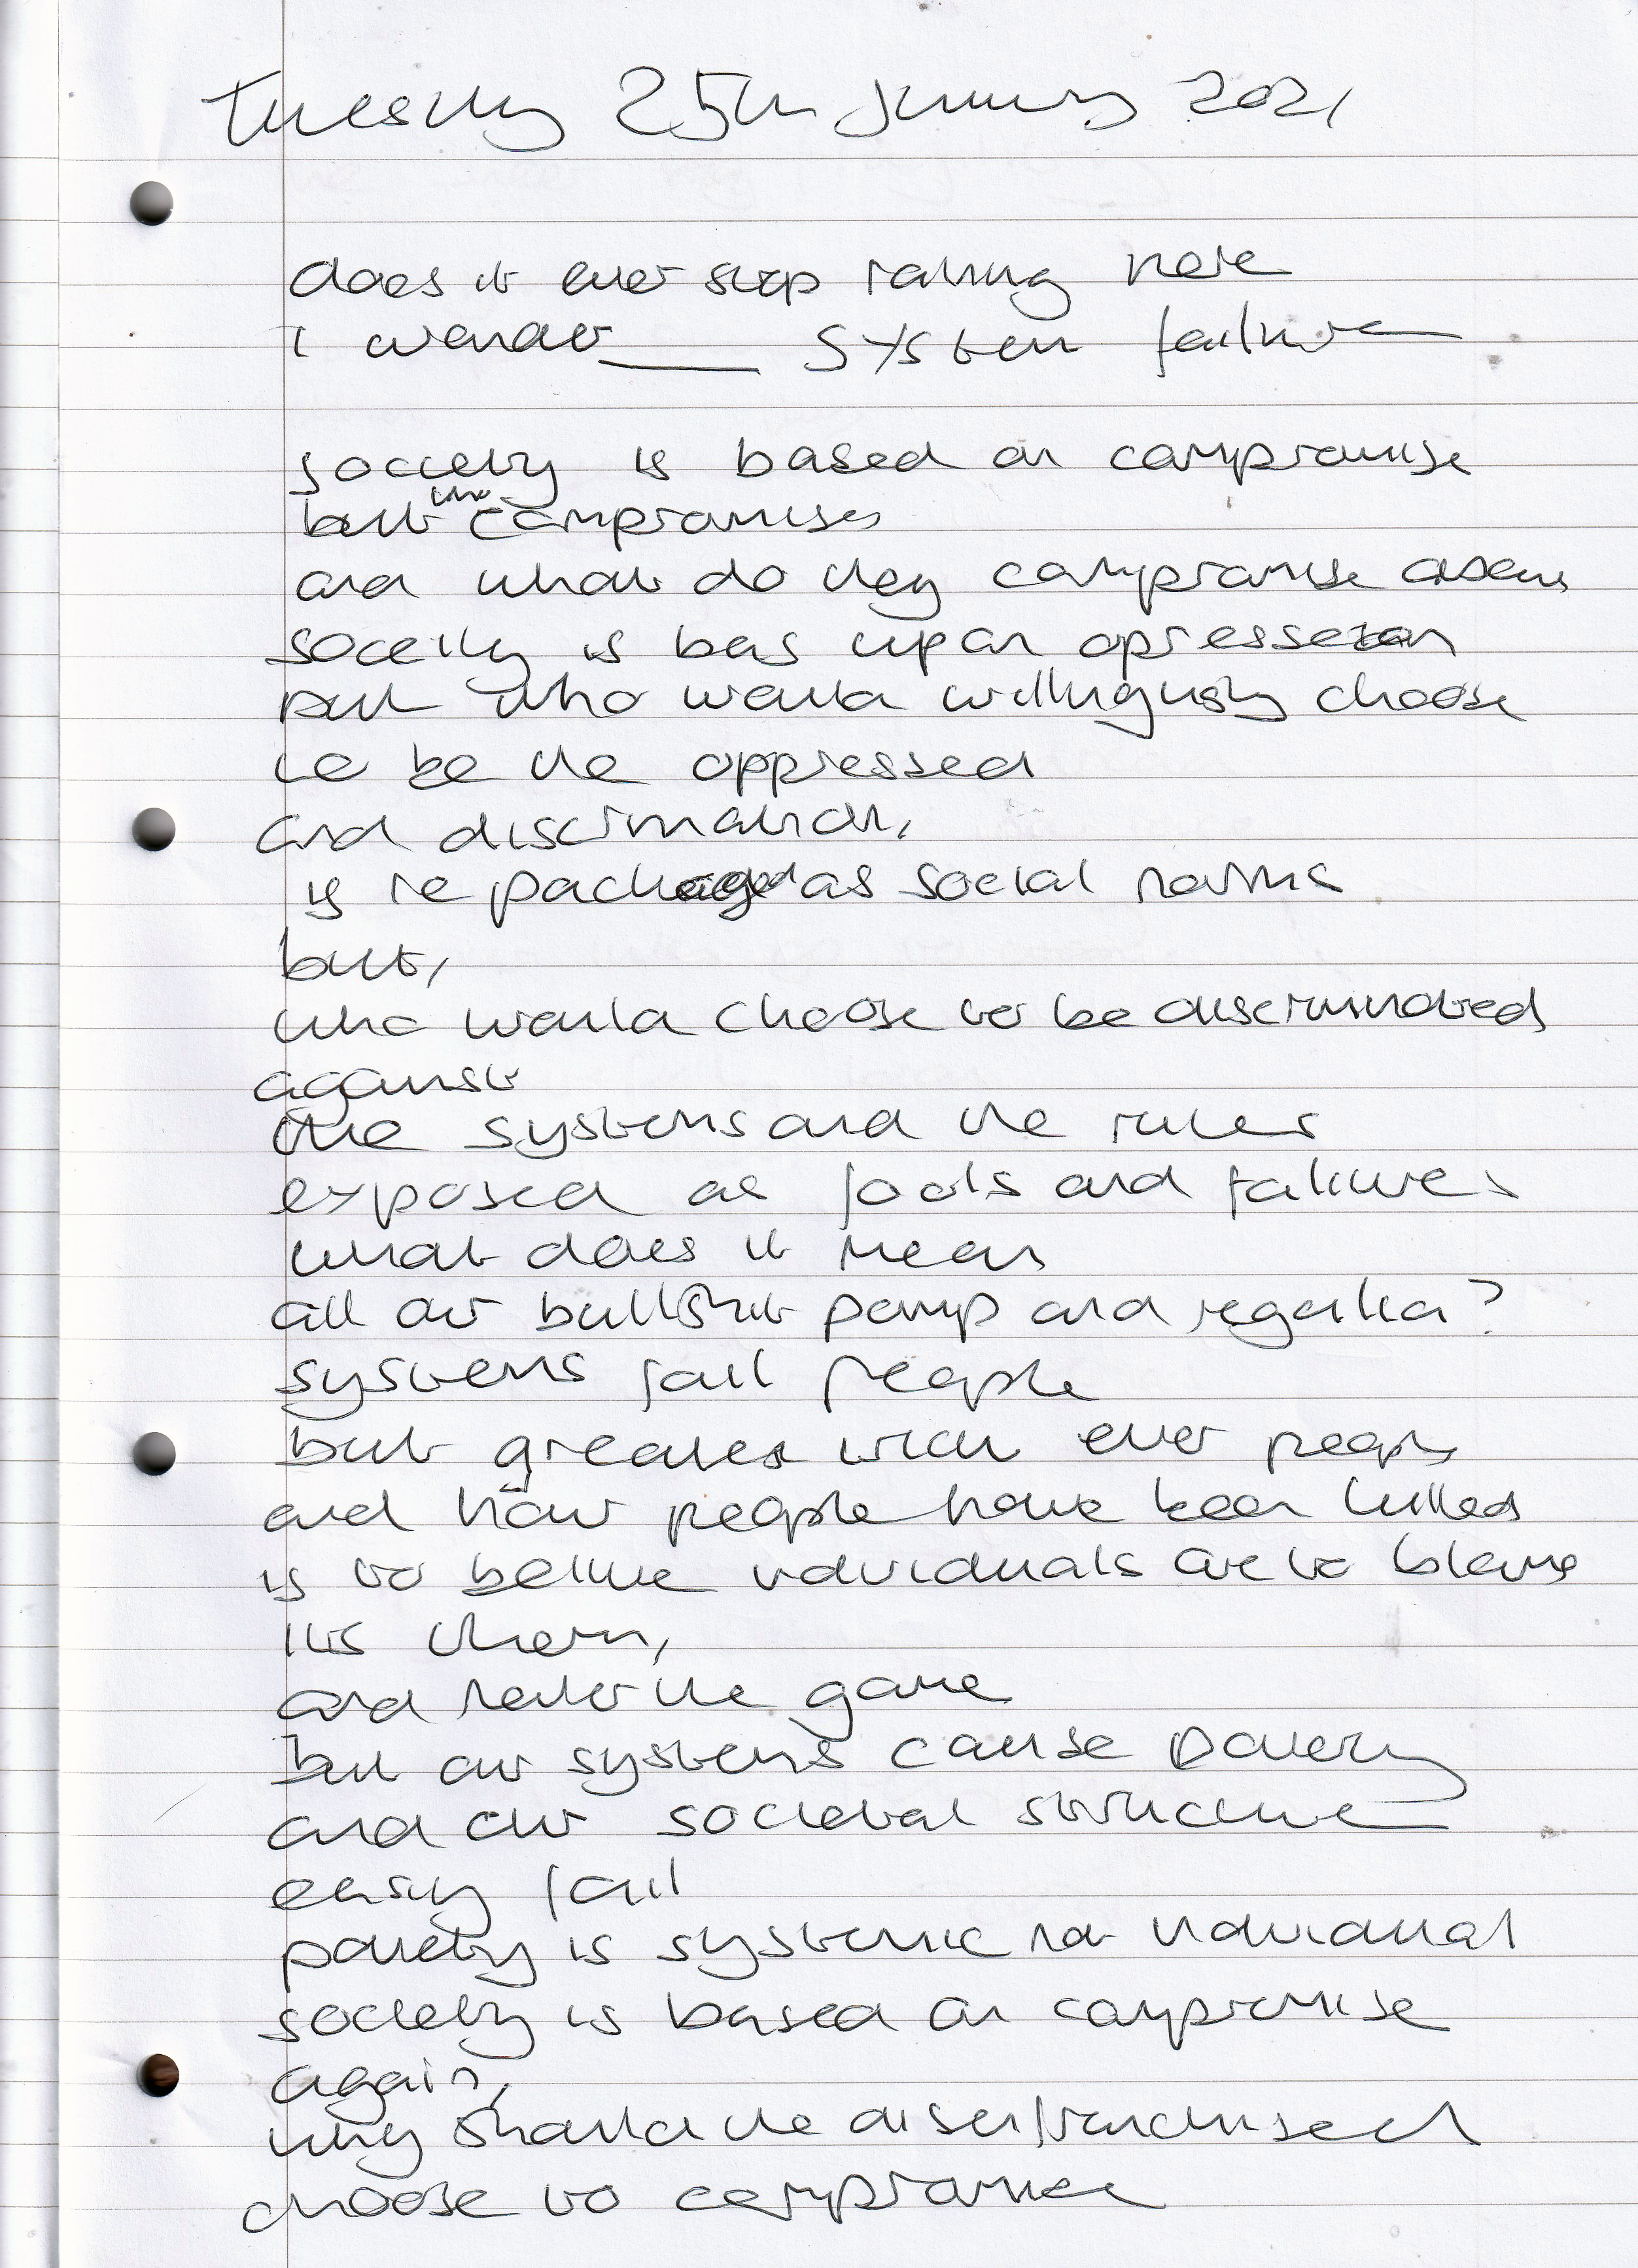 Tuesday 25th January 2021
does it ever stop raining here
I wonder___ System failure
society is based on compromise
but who compromises
and what do they compromise
soceity is bas upon opression
but who would choose
to be the oppressed
and discrimation,
is re packaged as social norms
but,
who would choose to be discriminated
against
the systems and the rules
exposed as fools and failures
what does it mean
all our bullshit pomp and regalia?
systems fail people
but greatest ever people
and how people have been killed
is to belive individuals are to blame
its them,
and the game
but our systems cause poverty
and our societal structure
easily fail
poverty is systemic not individual
society is based on compromise
again,
why should the disenfranchised
choose to compromise